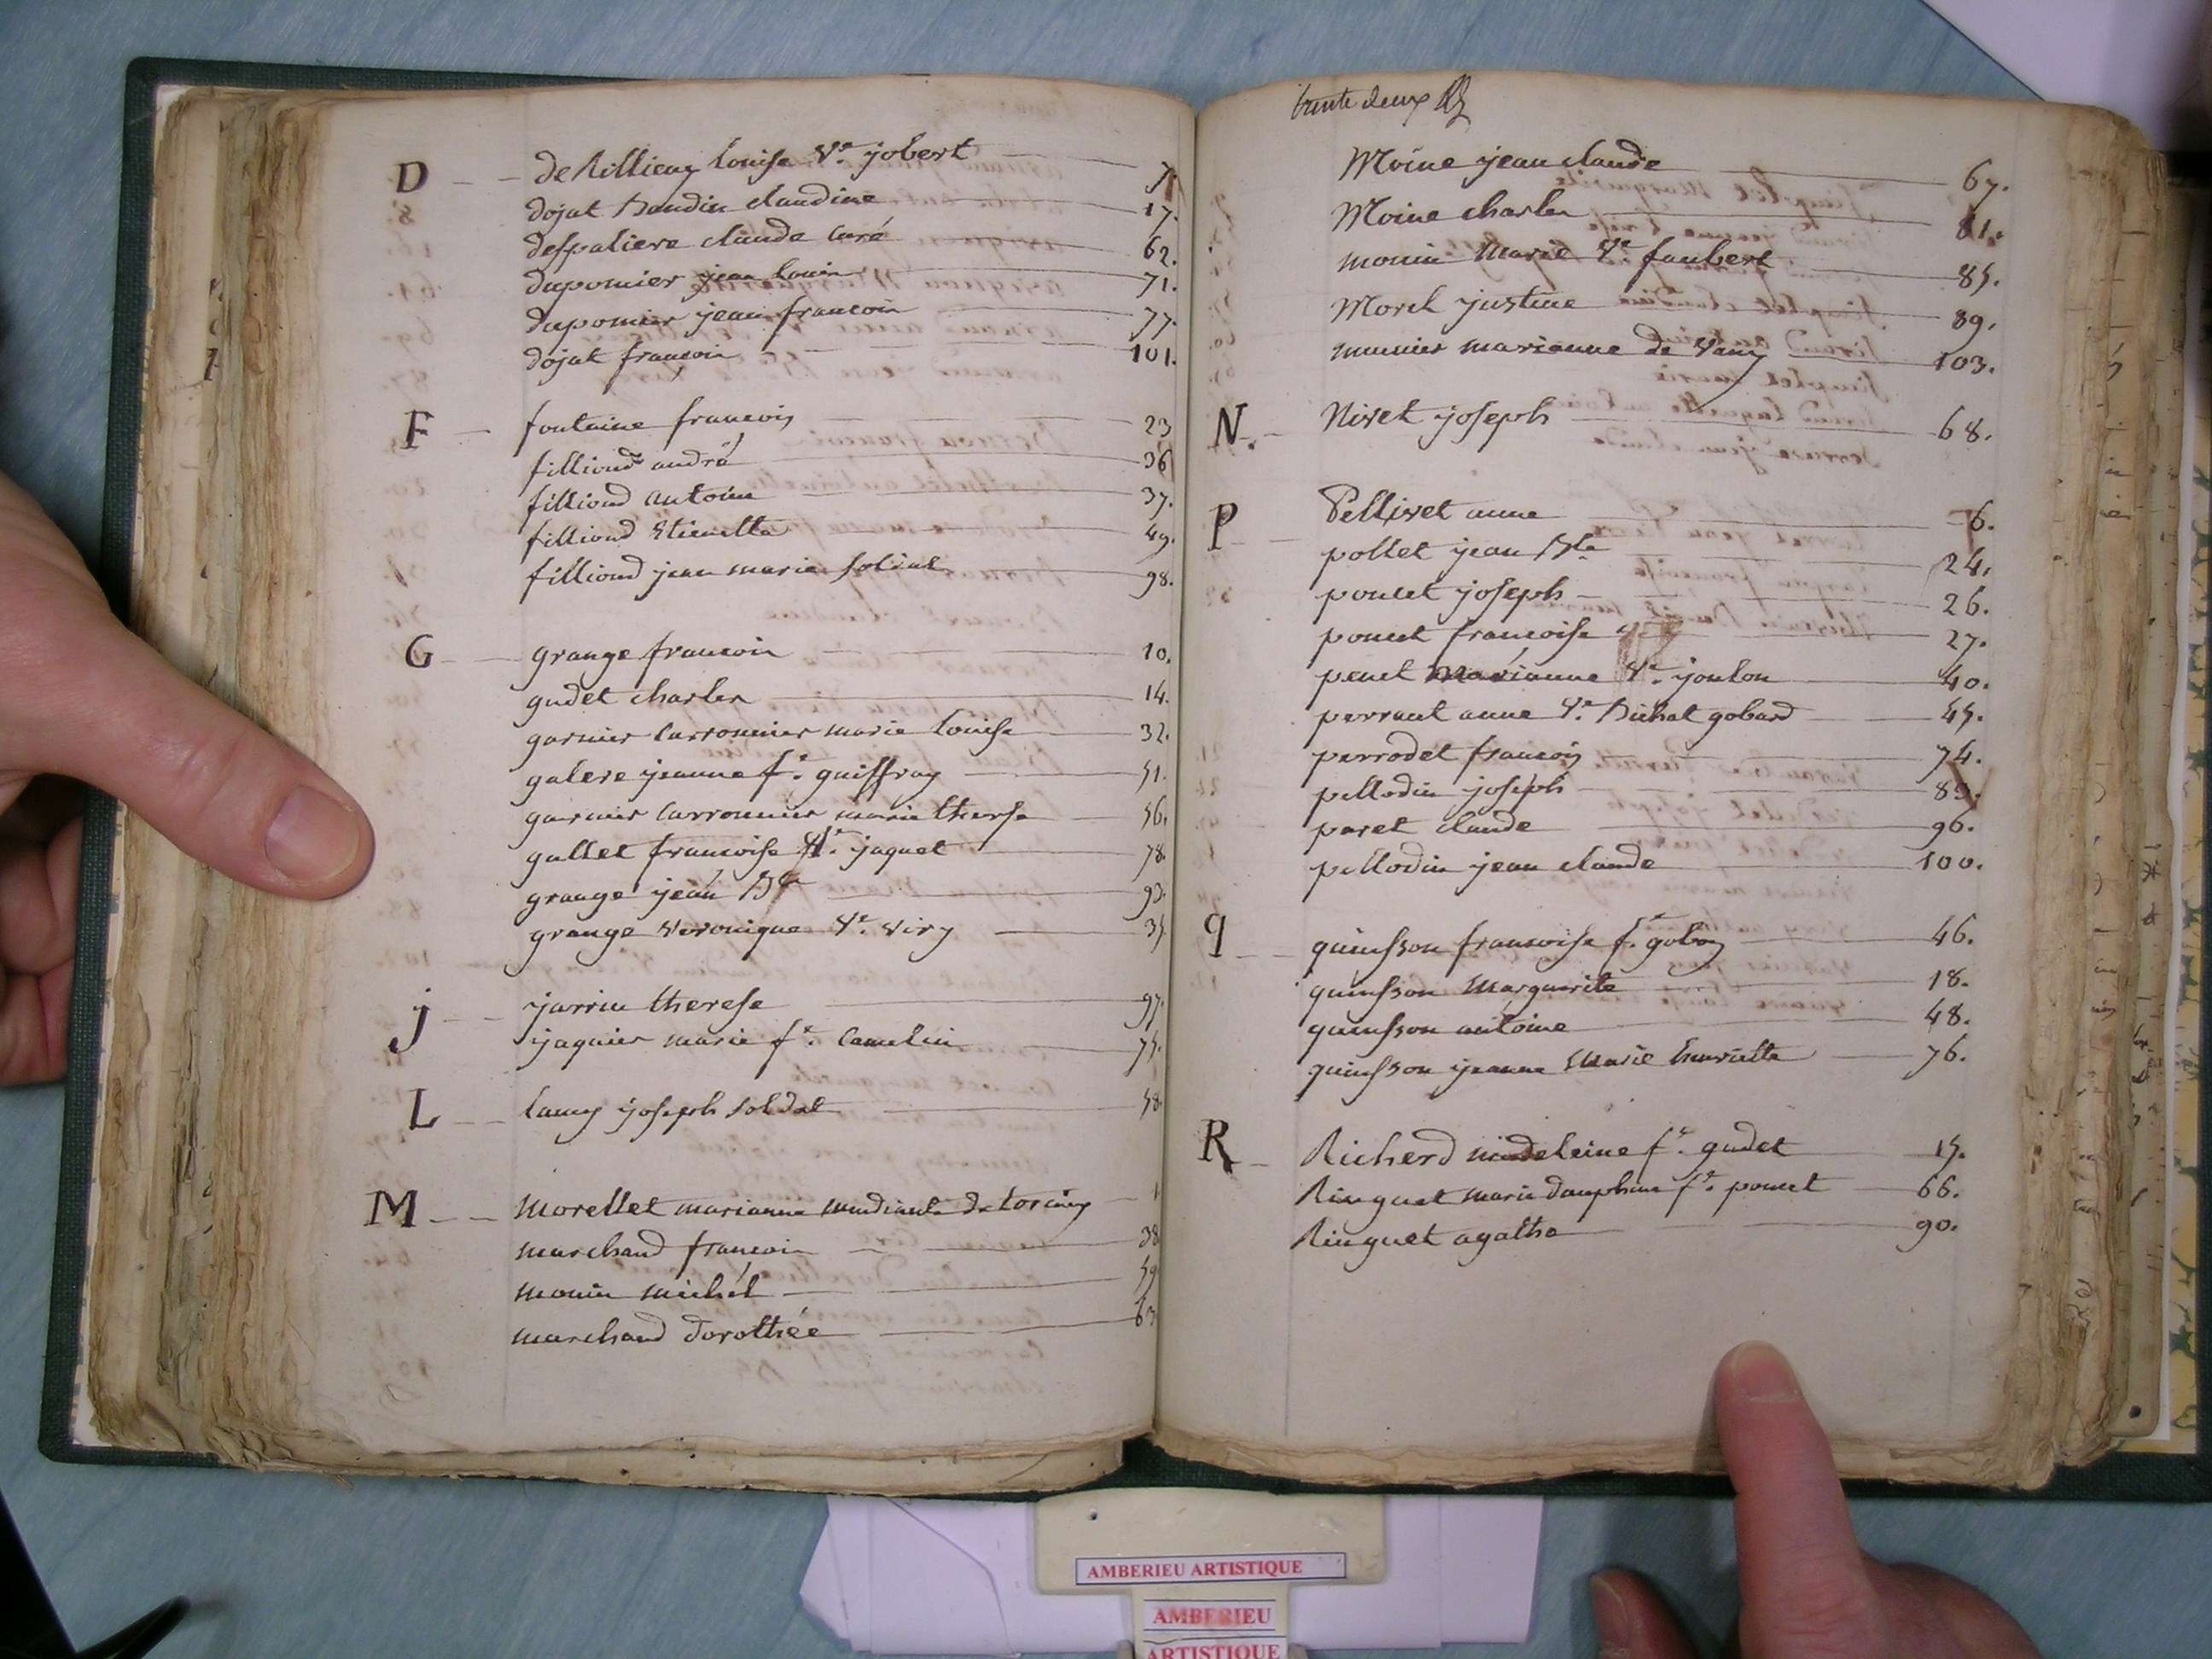 trente deux
D
de Rillieux louise Ve. jobert 7.
dojat Baudin claudine 17.
despaliere claude curé 62.
dupomier jean louis 71.
dupomier jean francois 77.
dojat francois 101.
F
fontaine francois 23
filliond andré 36
filliond antoine 37.
filliond Etienette 49.
filliond jean marie soldat 98.
G
grange francois 10.
gudet charles 14.
garnier carronnier marie louise 32.
galere jeanne fe. guiffray 51.
garnier carronnier marie therese 56.
gallet francoise Ve. jaquet 78.
grange jean Bte 93.
grange veronique Ve. viry 35
j
jarrin therese 97.
jaquier marie fe. Camelin 75.
L
lamy joseph soldat 58.
M
Morellet marianne mendiante de torcieu 1
marchand francois 38
monin michel 59
marchand dorothée 63
Moine jean claude 67.
Moine charles 81.
monin marie Ve faubert 85.
Morel justine 89.
munier marianne de Vaux 103.
N.
Nivet joseph 68.
P
Pellivet anne 6.
pollet jean Bte 24.
poncet joseph 26.
poncet francoise 27.
penet marianne Ve. jouton 40.
perraut anne Ve. Bichat gobard 45.
perrodet francois 74.
pellodin joseph 83.
paret claude 96.
pellodin jean claude 100.
q
quinsson francoise fe. goboz 46.
quinsson Marguerite 18.
quinsson antoine 48.
quinsson jeanne Marie henriette 76.
R
Richerd madeleine fe. gudet 15.
Ringuet marie dauphine fe. poncet 66.
Ringuet agathe 90.
AMBERIEU ARTISTIQUE
AMBERIEU
ARTISTIQUE